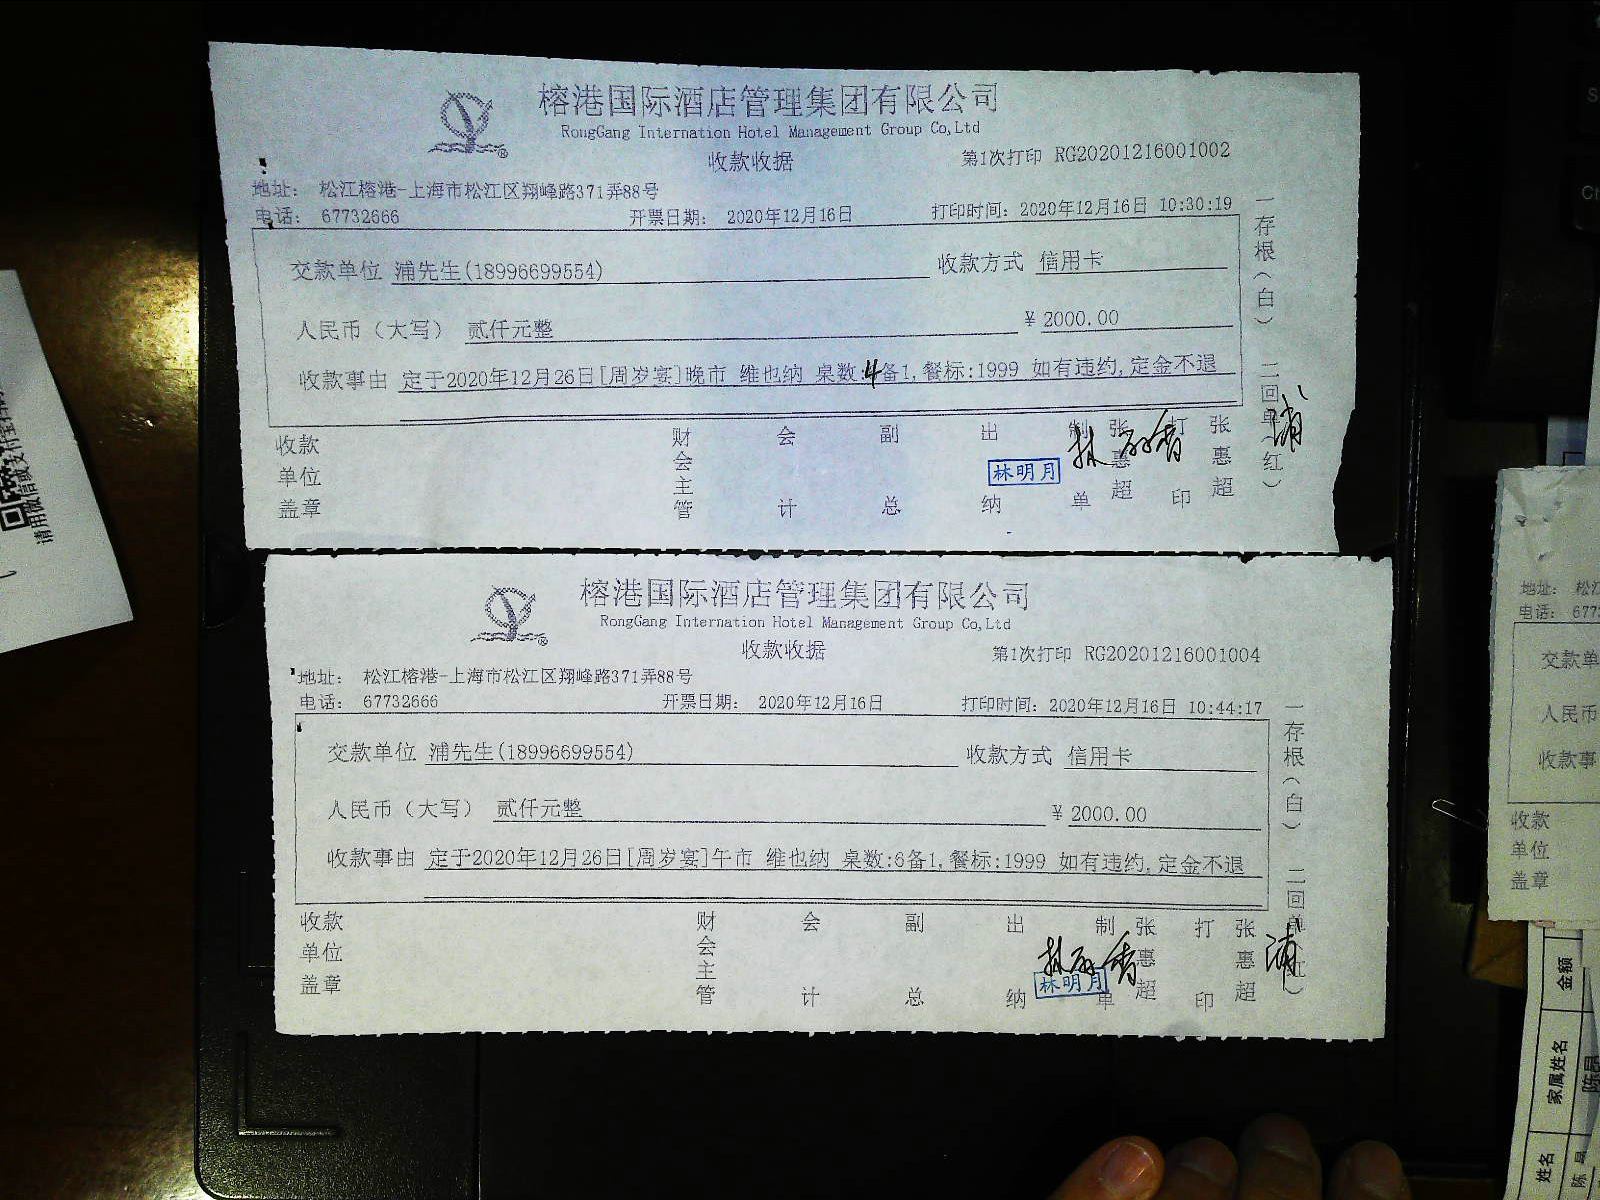 榕港国际酒店管理集团有限公司
RongGang Internation Hotel Management Group Co,Ltd
收款收据
第1次打印 RG20201216001002
地址: 松江榕港-上海市松江区翔峰路371弄88号
电话: 67732666 开票日期: 2020年12月16日 打印时间: 2020年12月16日 10:30:19
交款单位 浦先生(18996699554) 收款方式 信用卡
人民币（大写） 贰仟元整 ¥ 2000.00
收款事由 定于2020年12月26日[周岁宴]晚市 维也纳 桌数:4备1,餐标:1999 如有违约,定金不退
一存根（白） 二回单（红）
收款单位盖章 财会主管 会计 副总 出纳 林明月 制单 张惠超 打印 张惠超 浦
榕港国际酒店管理集团有限公司
RongGang Internation Hotel Management Group Co,Ltd
收款收据
第1次打印 RG20201216001004
地址: 松江榕港-上海市松江区翔峰路371弄88号
电话: 67732666 开票日期: 2020年12月16日 打印时间: 2020年12月16日 10:44:17
交款单位 浦先生(18996699554) 收款方式 信用卡
人民币（大写） 贰仟元整 ¥ 2000.00
收款事由 定于2020年12月26日[周岁宴]午市 维也纳 桌数:6备1,餐标:1999 如有违约,定金不退
一存根（白） 二回单（红）
收款单位盖章 财会主管 会计 副总 出纳 林明月 制单 张惠超 打印 张惠超 浦
地址: 松江
电话: 677
交款单
人民币
收款事
收款
单位
盖章
金额
家属姓名
姓名